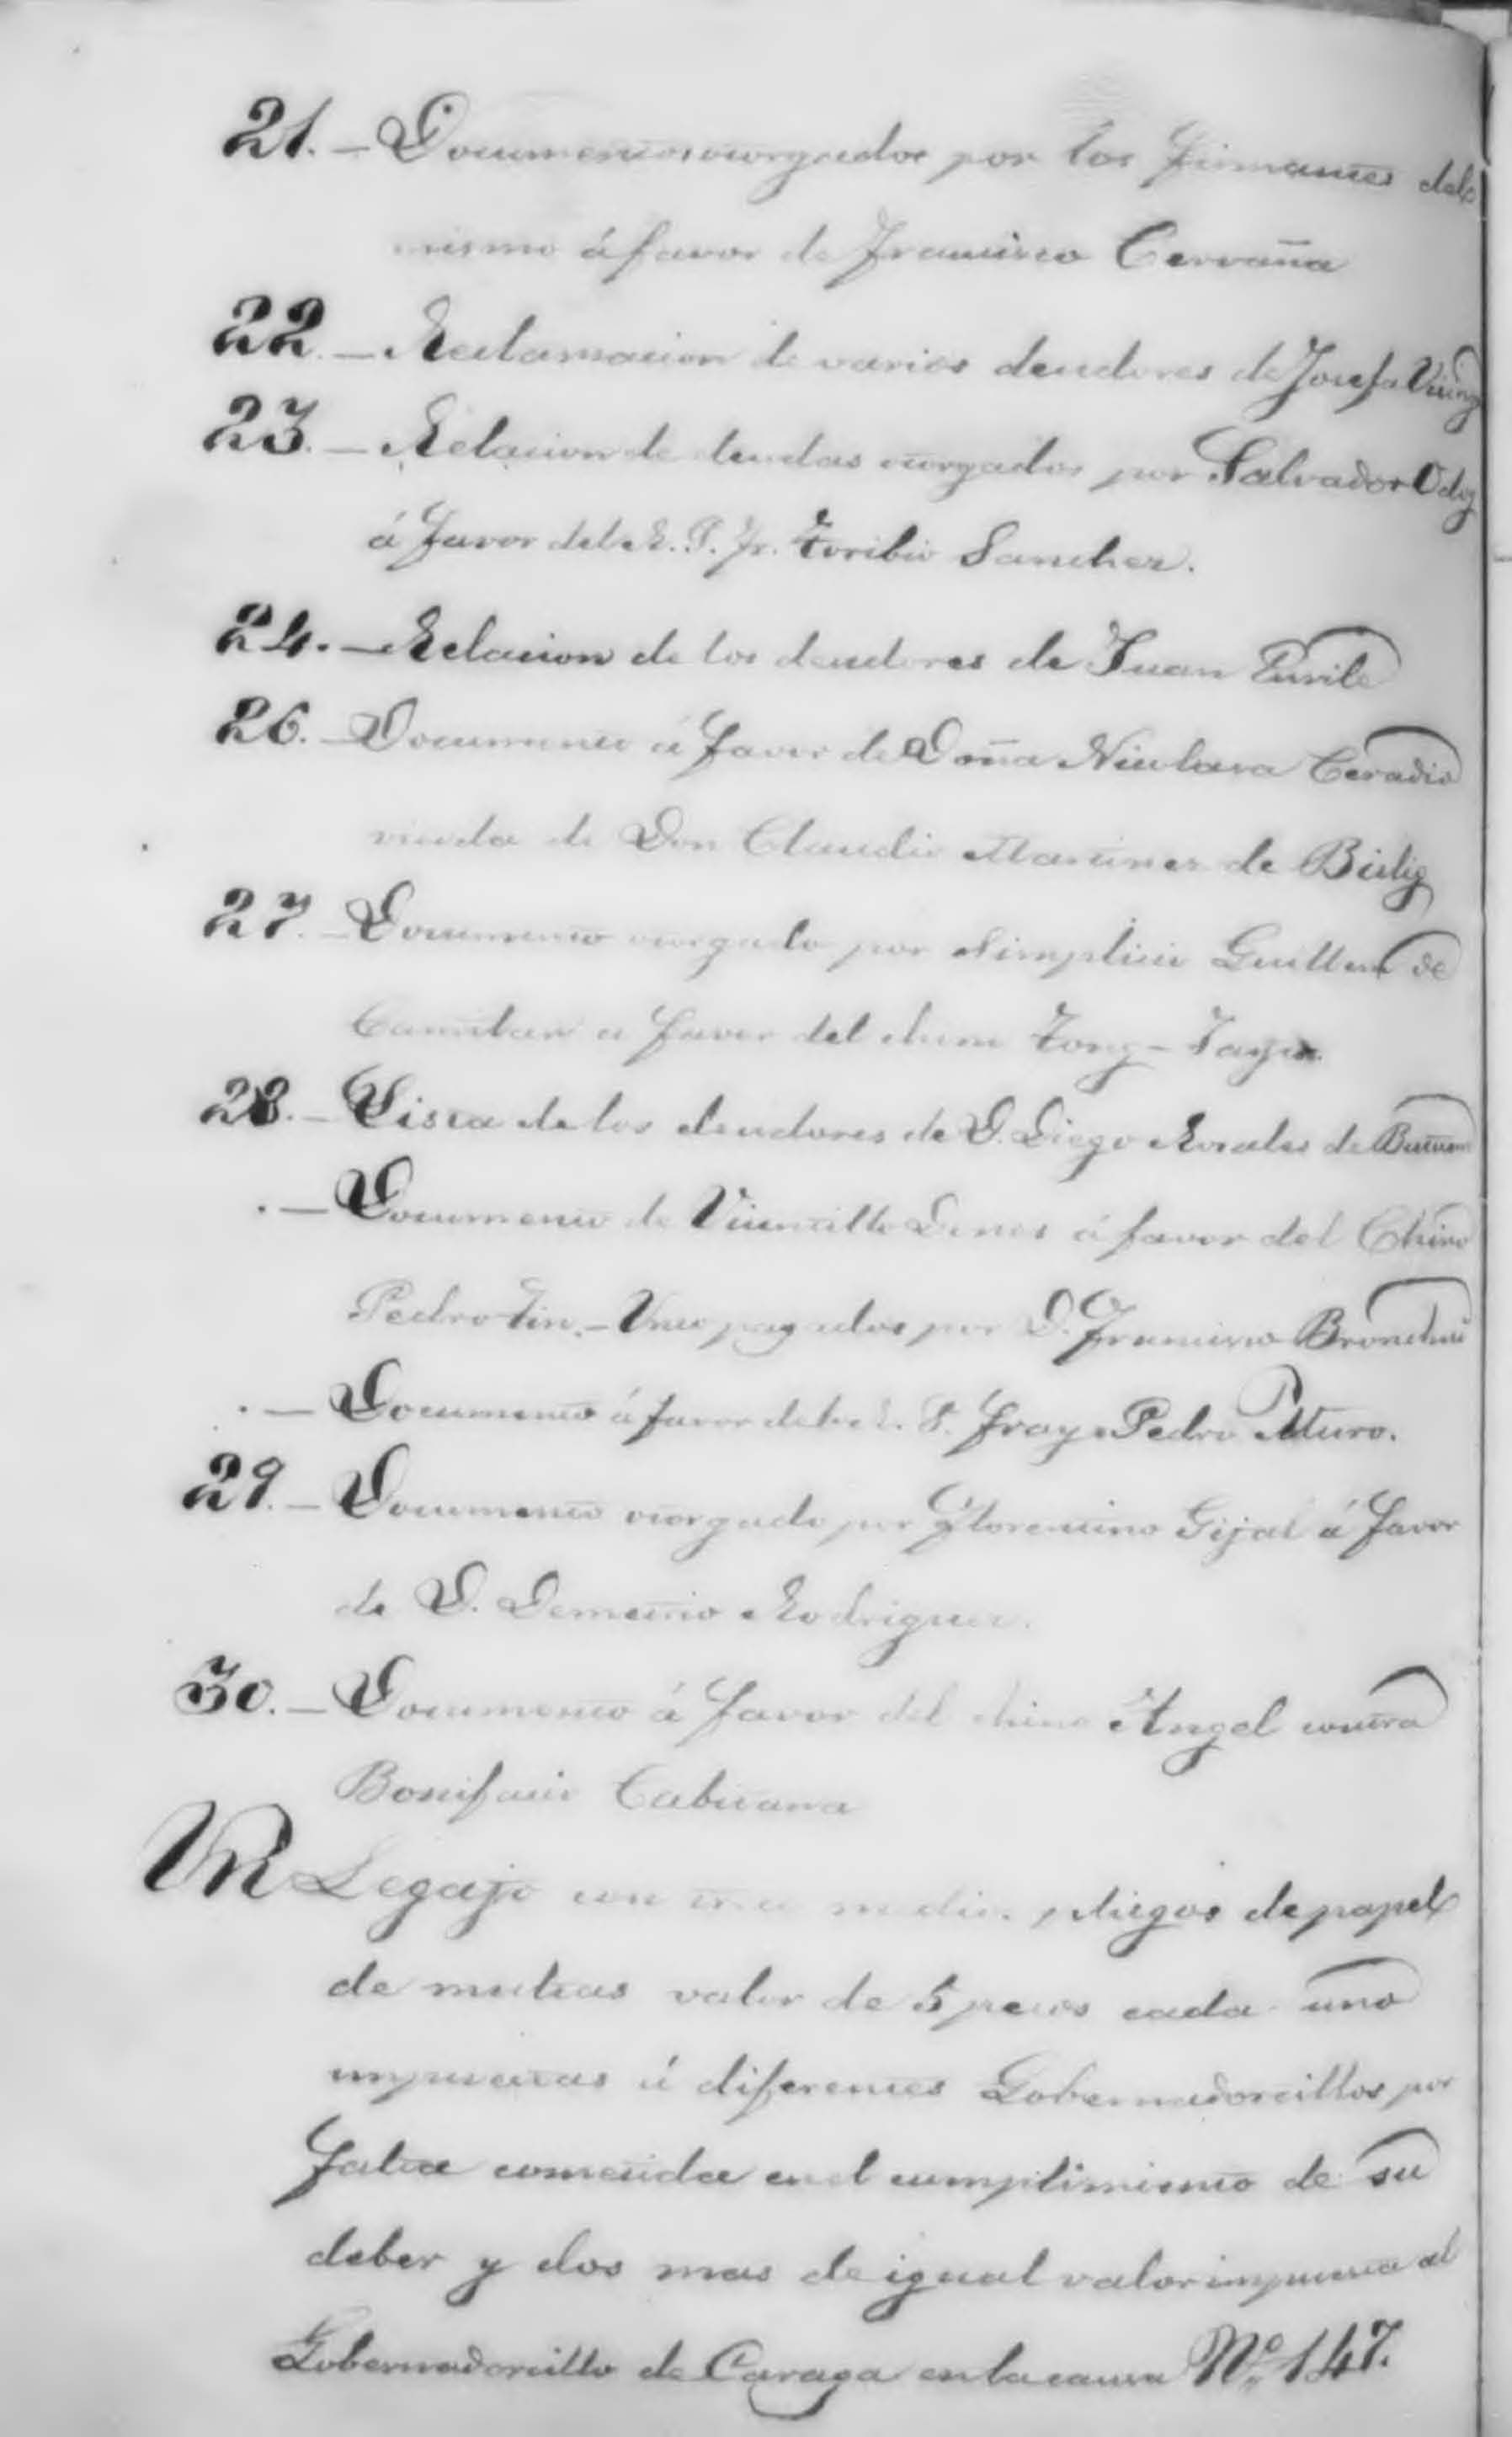 21. — Documentos otorgados por los firmantes del
mismo á favor de Francisco Cervaña
22. — Reclamacion de varios deudores de Josefa
23. — Relacion de deudas otorgados por Salvador
á favor del R. P. Fr. Toribio Sanchez.
24. — Relacion de los deudores de Juan
26. — Documento á favor de Doña Nicolasa
viuda de Don Claudio Martinez de Bislig
27. — Documento otorgado por Simplicio Guillen de
a favor del chino Tong-
28. — Lista de los deudores de D. Diego de
. — Documento de á favor del Chino
Pedro Tin. — pagados por D. Francisco
. — Documento á favor del R. P. fray Pedro Muro.
29. — Documento otorgado por Florentino Gijal á favor
de D. Demetrio Rodriguez.
30. — Documento á favor del chino Angel contra
Bonifacio
Un Legajo con medios pliegos de papel
de multas valor de 5 pesos cada uno
impuestas á diferentes Gobernadorcillos por
falta cometida en el cumplimiento de su
deber y dos mas de igual valor impuesta al
Gobernadorcillo de Caraga en la causa Nº 147.